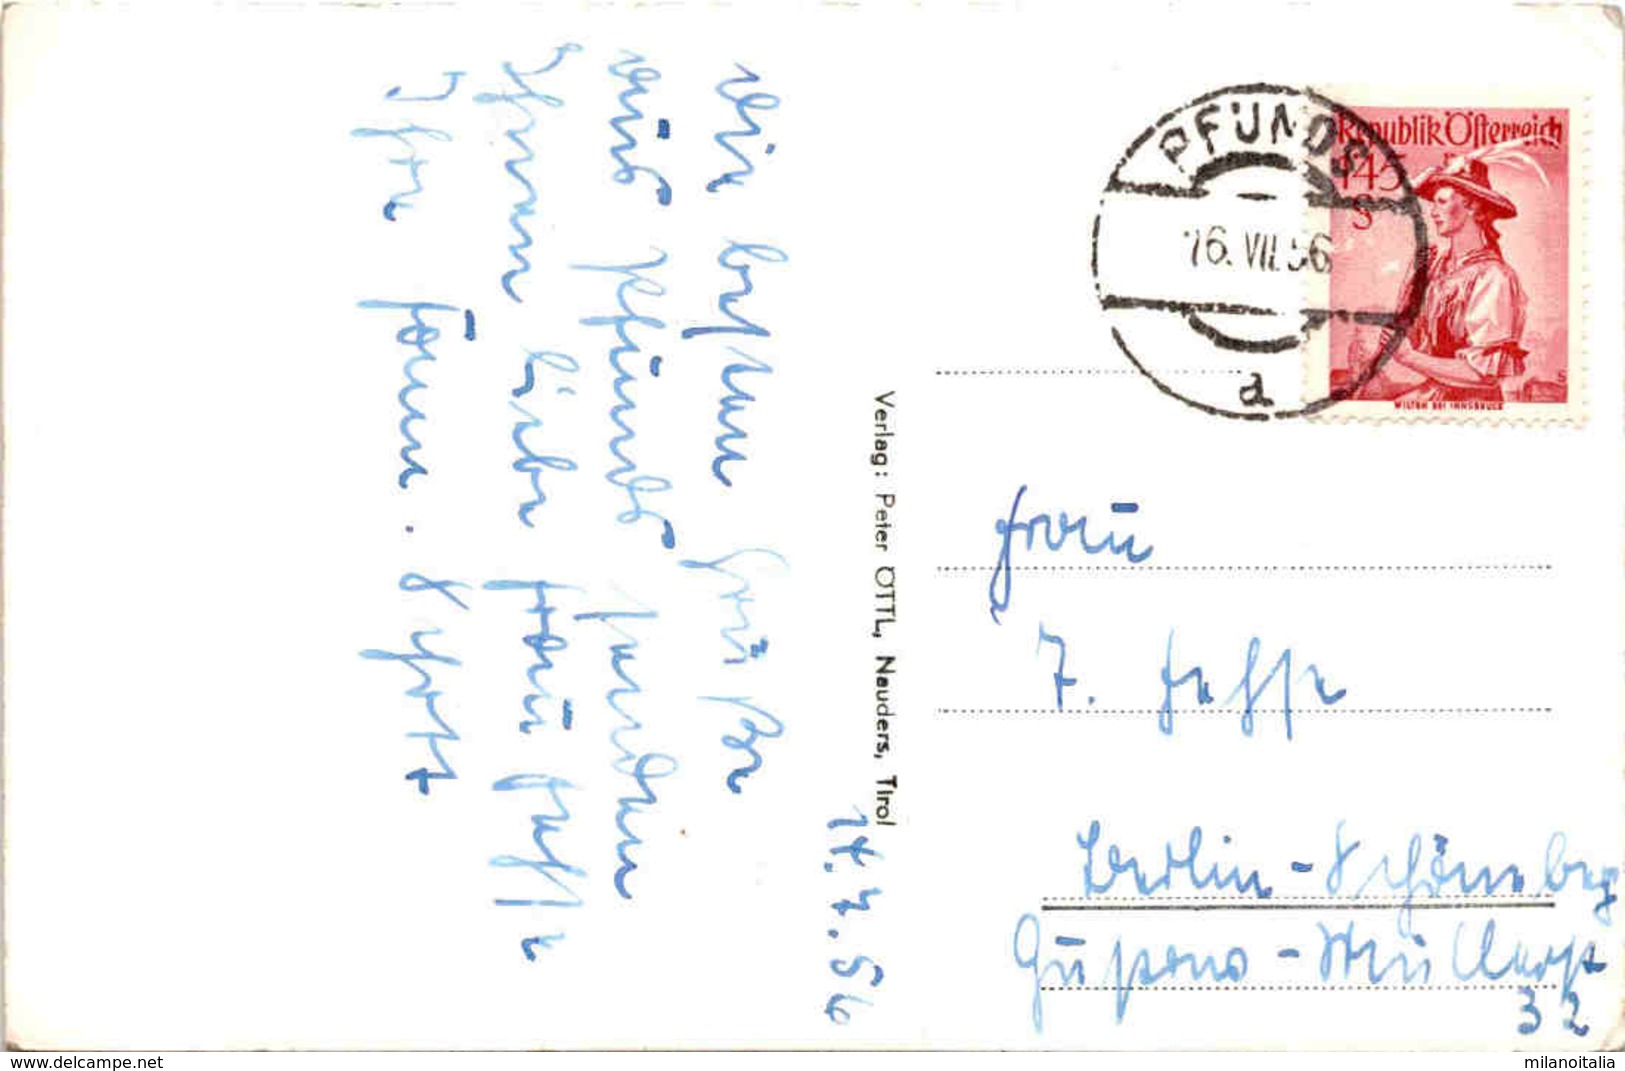 14.7.56
Die besten Grüße
aus Pfunds senden
Ihnen liebe Frau Hesse
Ihre Fam. Schott
Verlag: Peter ÖTTL, Nauders, Tirol
PFUNDS
16.VII.56
d
Republik Österreich
1.45
S
WILTEN BEI INNSBRUCK
Frau
J. Hesse
Berlin-Schöneberg
Gustav-Müllerst
32
www.delcampe.net
milanoitalia